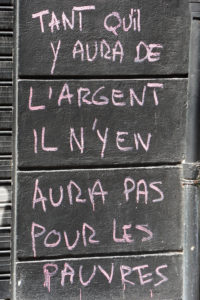 TANT QU'IL
Y AURA DE
L'ARGENT
IL N'Y EN
AURA PAS
POUR LES
PAUVRES